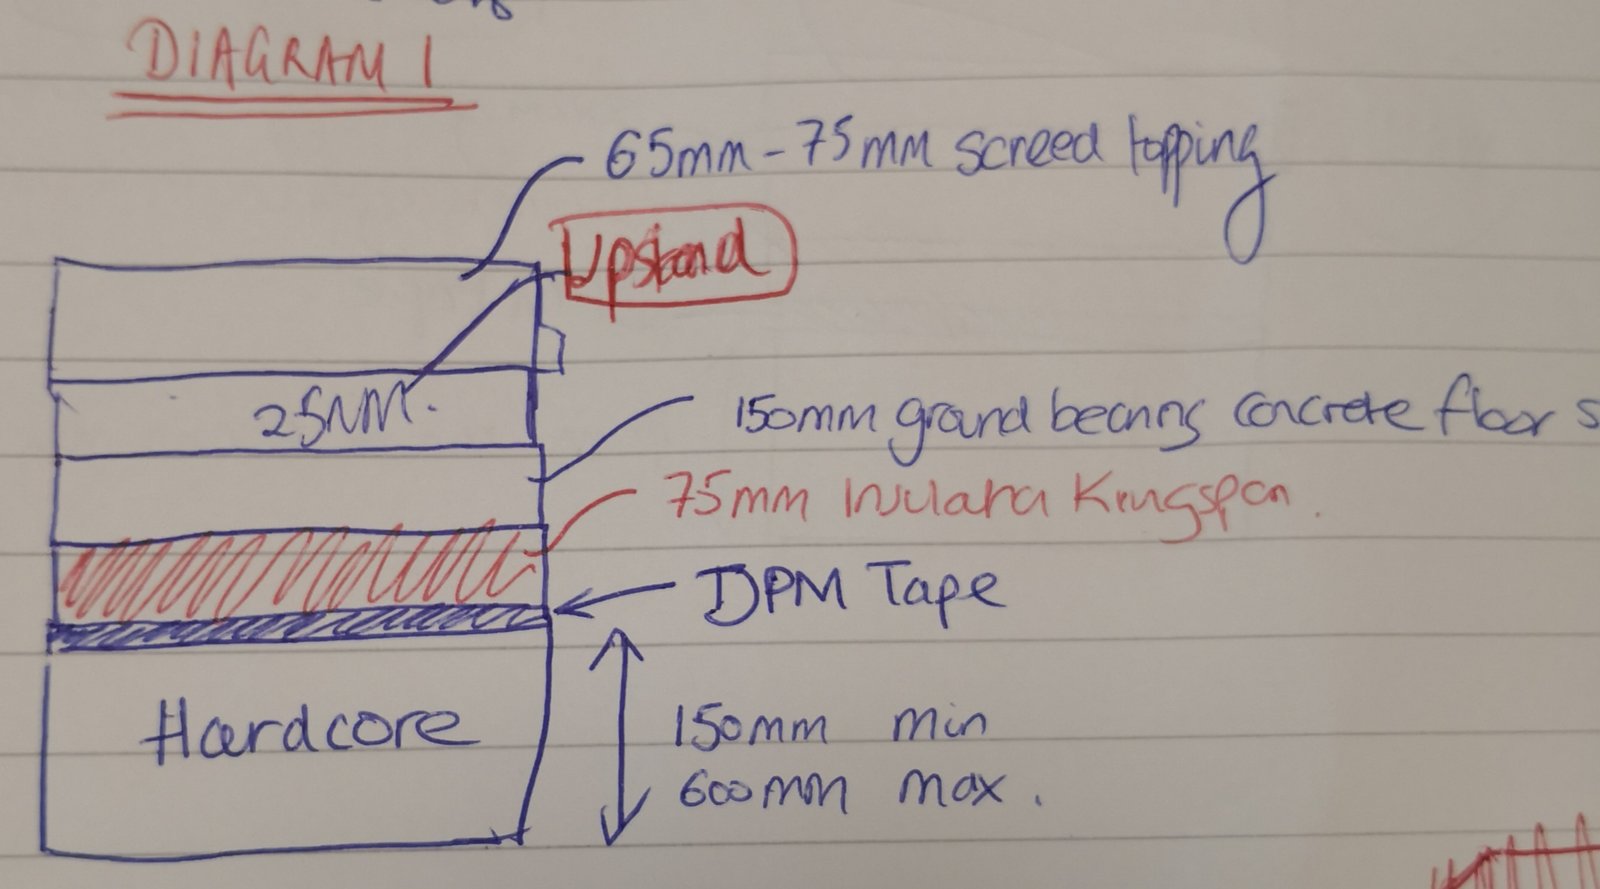 DIAGRAM 1
65mm - 75mm screed topping
Upstand
25MM.
150mm ground bearing concrete floor s
75mm Kingspan.
DPM Tape
Hardcore
150mm min
600mm max.